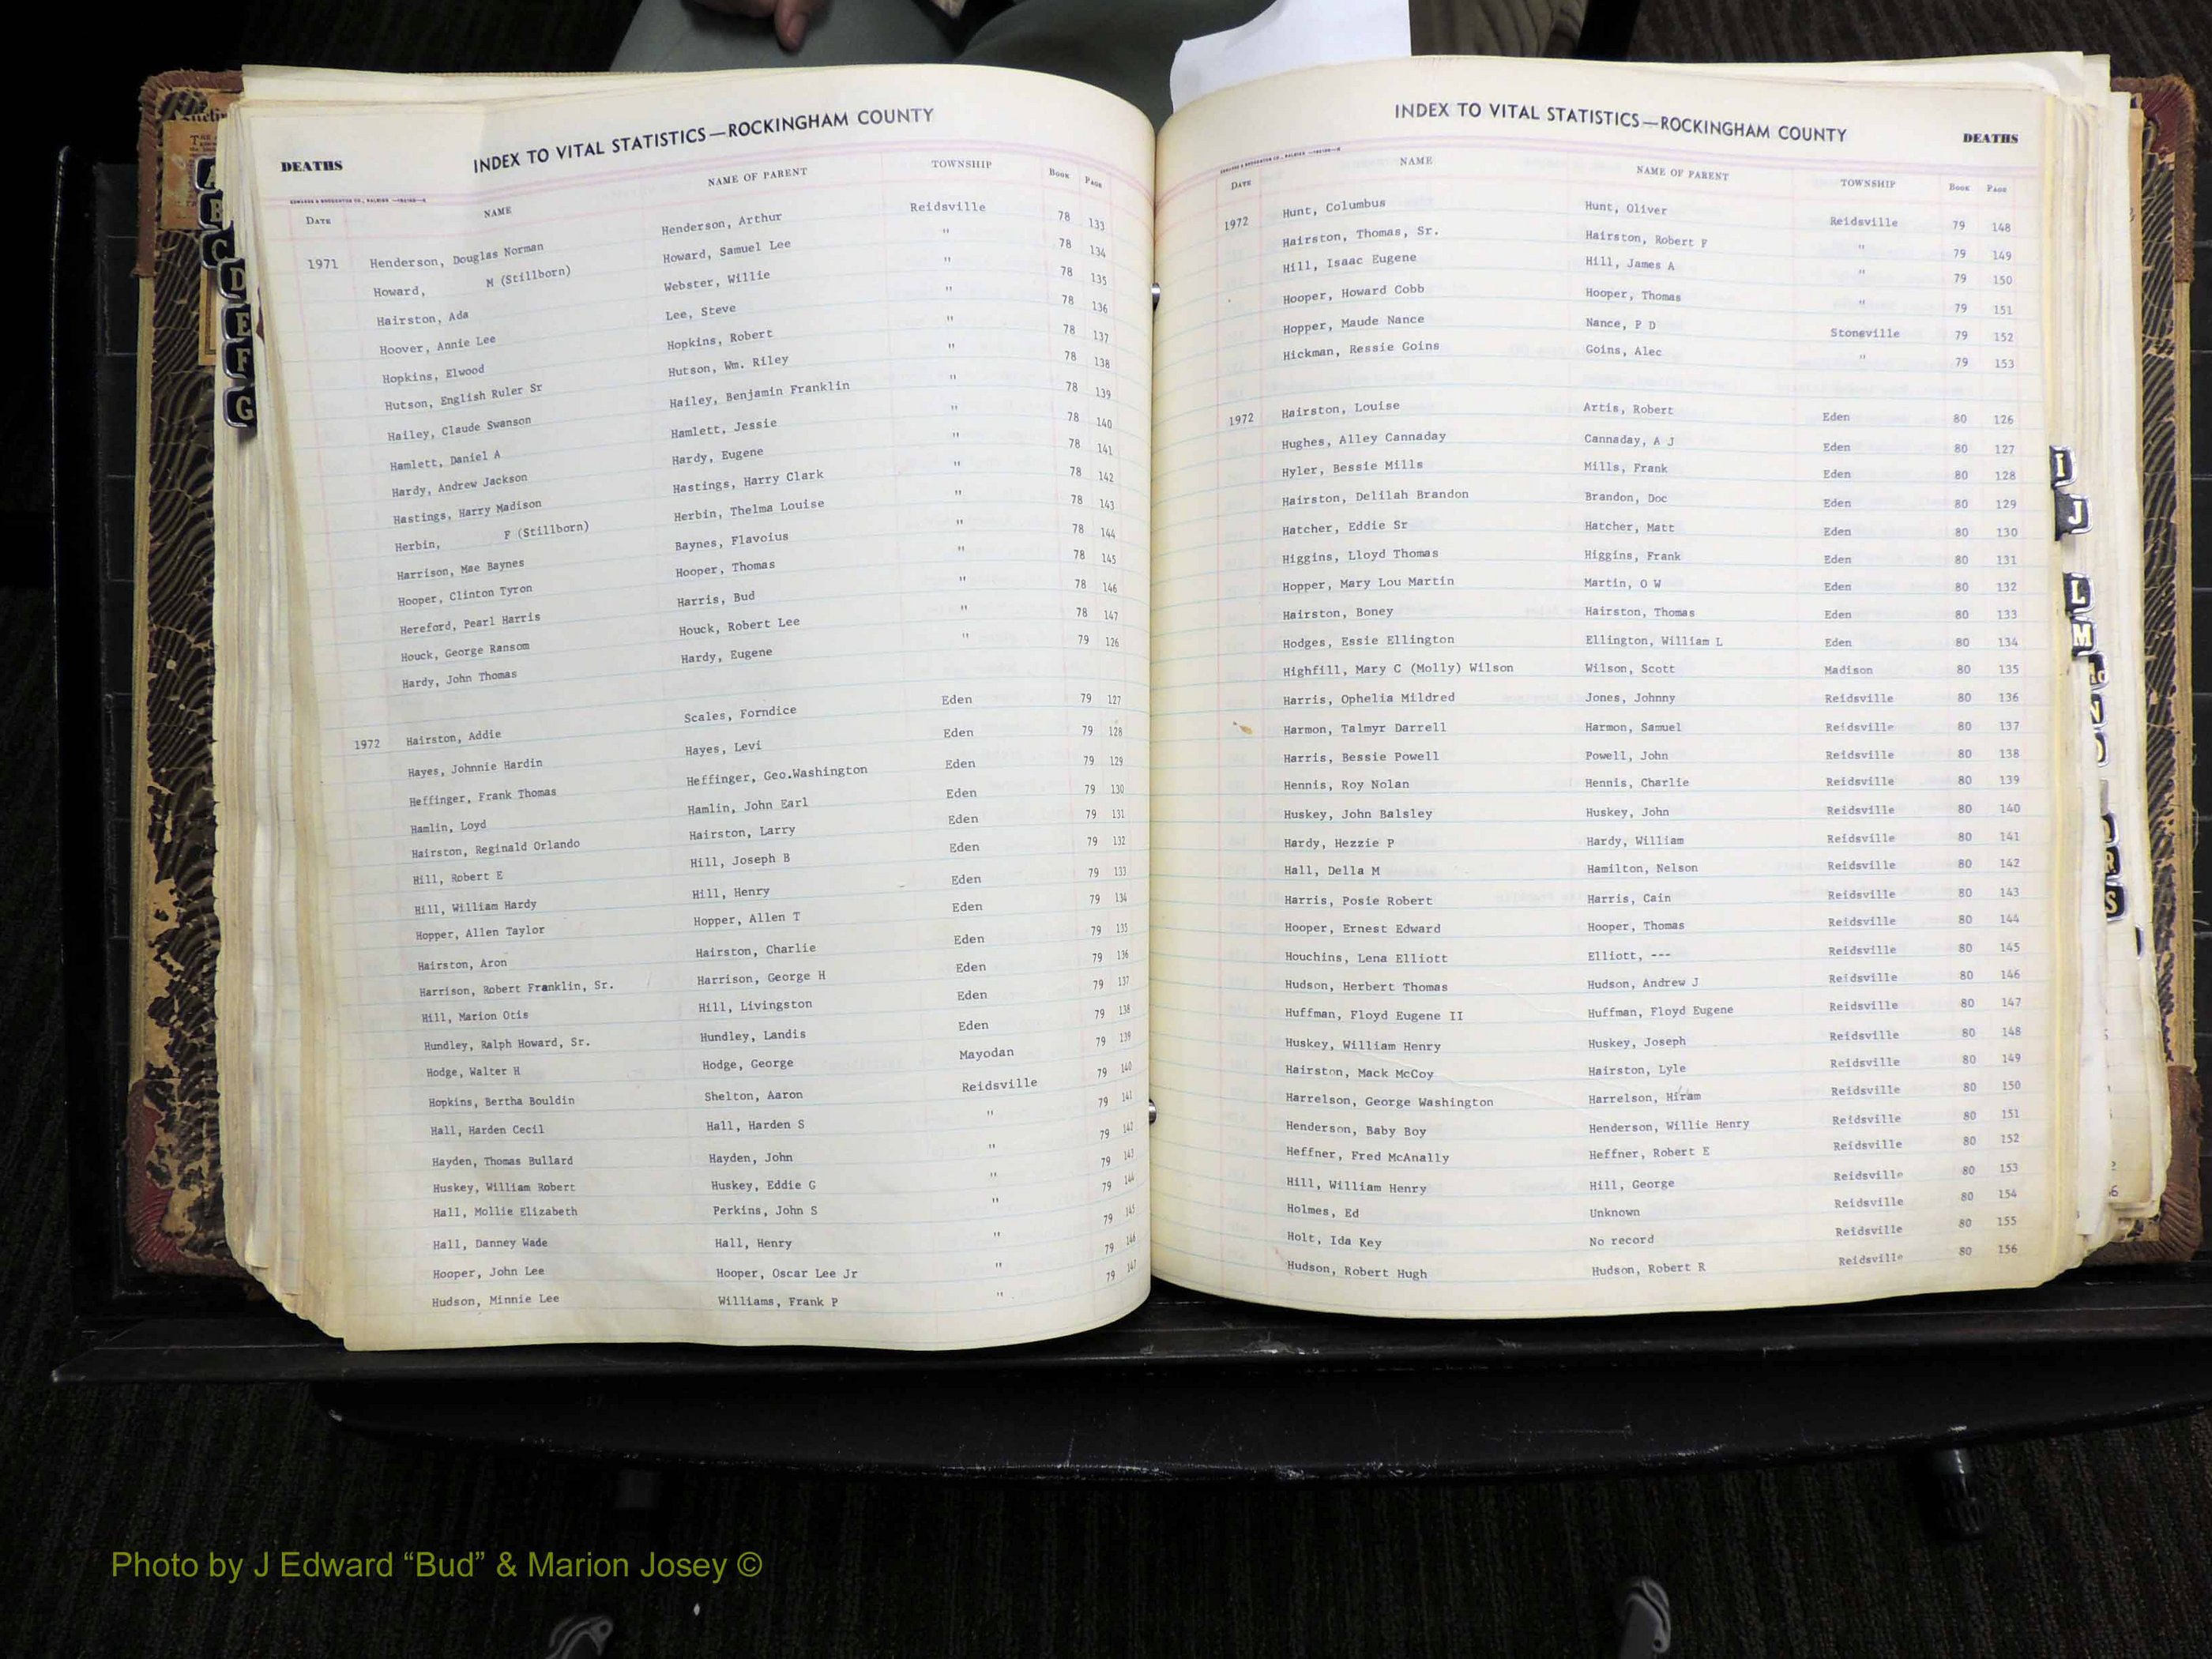 INDEX TO VITAL STATISTICS—ROCKINGHAM COUNTY
DEATHS
DATE NAME NAME OF PARENT TOWNSHIP BOOK PAGE
1971 Henderson, Douglas Norman Henderson, Arthur Reidsville 78 133
Howard, M (Stillborn) Howard, Samuel Lee " 78 134
Hairston, Ada Webster, Willie " 78 135
Hoover, Annie Lee Lee, Steve " 78 136
Hopkins, Elwood Hopkins, Robert " 78 137
Hutson, English Ruler Sr Hutson, Wm. Riley " 78 138
Hailey, Claude Swanson Hailey, Benjamin Franklin " 78 139
Hamlett, Daniel A Hamlett, Jessie " 78 140
Hardy, Andrew Jackson Hardy, Eugene " 78 141
Hastings, Harry Madison Hastings, Harry Clark " 78 142
Herbin, F (Stillborn) Herbin, Thelma Louise " 78 143
Harrison, Mae Baynes Baynes, Flavoius " 78 144
Hooper, Clinton Tyron Hooper, Thomas " 78 145
Hereford, Pearl Harris Harris, Bud " 78 146
Houck, George Ransom Houck, Robert Lee " 78 147
Hardy, John Thomas Hardy, Eugene " 79 126
1972 Hairston, Addie Scales, Forndice Eden 79 127
Hayes, Johnnie Hardin Hayes, Levi Eden 79 128
Heffinger, Frank Thomas Heffinger, Geo.Washington Eden 79 129
Hamlin, Loyd Hamlin, John Earl Eden 79 130
Hairston, Reginald Orlando Hairston, Larry Eden 79 131
Hill, Robert E Hill, Joseph B Eden 79 132
Hill, William Hardy Hill, Henry Eden 79 133
Hopper, Allen Taylor Hopper, Allen T Eden 79 134
Hairston, Aron Hairston, Charlie Eden 79 135
Harrison, Robert Franklin, Sr. Harrison, George H Eden 79 136
Hill, Marion Otis Hill, Livingston Eden 79 137
Hundley, Ralph Howard, Sr. Hundley, Landis Eden 79 138
Hodge, Walter H Hodge, George Mayodan 79 139
Hopkins, Bertha Bouldin Shelton, Aaron Reidsville 79 140
Hall, Harden Cecil Hall, Harden S " 79 141
Hayden, Thomas Bullard Hayden, John " 79 142
Huskey, William Robert Huskey, Eddie G " 79 143
Hall, Mollie Elizabeth Perkins, John S " 79 144
Hall, Danney Wade Hall, Henry " 79 145
Hooper, John Lee Hooper, Oscar Lee Jr " 79 146
Hudson, Minnie Lee Williams, Frank P " 79 147
INDEX TO VITAL STATISTICS—ROCKINGHAM COUNTY
DEATHS
DATE NAME NAME OF PARENT TOWNSHIP BOOK PAGE
1972 Hunt, Columbus Hunt, Oliver Reidsville 79 148
Hairston, Thomas, Sr. Hairston, Robert F " 79 149
Hill, Isaac Eugene Hill, James A " 79 150
Hooper, Howard Cobb Hooper, Thomas " 79 151
Hopper, Maude Nance Nance, P D Stoneville 79 152
Hickman, Ressie Goins Goins, Alec " 79 153
1972 Hairston, Louise Artis, Robert Eden 80 126
Hughes, Alley Cannaday Cannaday, A J Eden 80 127
Hyler, Bessie Mills Mills, Frank Eden 80 128
Hairston, Delilah Brandon Brandon, Doc Eden 80 129
Hatcher, Eddie Sr Hatcher, Matt Eden 80 130
Higgins, Lloyd Thomas Higgins, Frank Eden 80 131
Hopper, Mary Lou Martin Martin, O W Eden 80 132
Hairston, Boney Hairston, Thomas Eden 80 133
Hodges, Essie Ellington Ellington, William L Eden 80 134
Highfill, Mary C (Molly) Wilson Wilson, Scott Madison 80 135
Harris, Ophelia Mildred Jones, Johnny Reidsville 80 136
Harmon, Talmyr Darrell Harmon, Samuel Reidsville 80 137
Harris, Bessie Powell Powell, John Reidsville 80 138
Hennis, Roy Nolan Hennis, Charlie Reidsville 80 139
Huskey, John Balsley Huskey, John Reidsville 80 140
Hardy, Hezzie P Hardy, William Reidsville 80 141
Hall, Della M Hamilton, Nelson Reidsville 80 142
Harris, Posie Robert Harris, Cain Reidsville 80 143
Hooper, Ernest Edward Hooper, Thomas Reidsville 80 144
Houchins, Lena Elliott Elliott, --- Reidsville 80 145
Hudson, Herbert Thomas Hudson, Andrew J Reidsville 80 146
Huffman, Floyd Eugene II Huffman, Floyd Eugene Reidsville 80 147
Huskey, William Henry Huskey, Joseph Reidsville 80 148
Hairston, Mack McCoy Hairston, Lyle Reidsville 80 149
Harrelson, George Washington Harrelson, Hiram Reidsville 80 150
Henderson, Baby Boy Henderson, Willie Henry Reidsville 80 151
Heffner, Fred McAnally Heffner, Robert E Reidsville 80 152
Hill, William Henry Hill, George Reidsville 80 153
Holmes, Ed Unknown Reidsville 80 154
Holt, Ida Key No record Reidsville 80 155
Hudson, Robert Hugh Hudson, Robert R Reidsville 80 156
B
C
D
E
F
G
I
J
L
M
R
S
Photo by J Edward “Bud” & Marion Josey ©